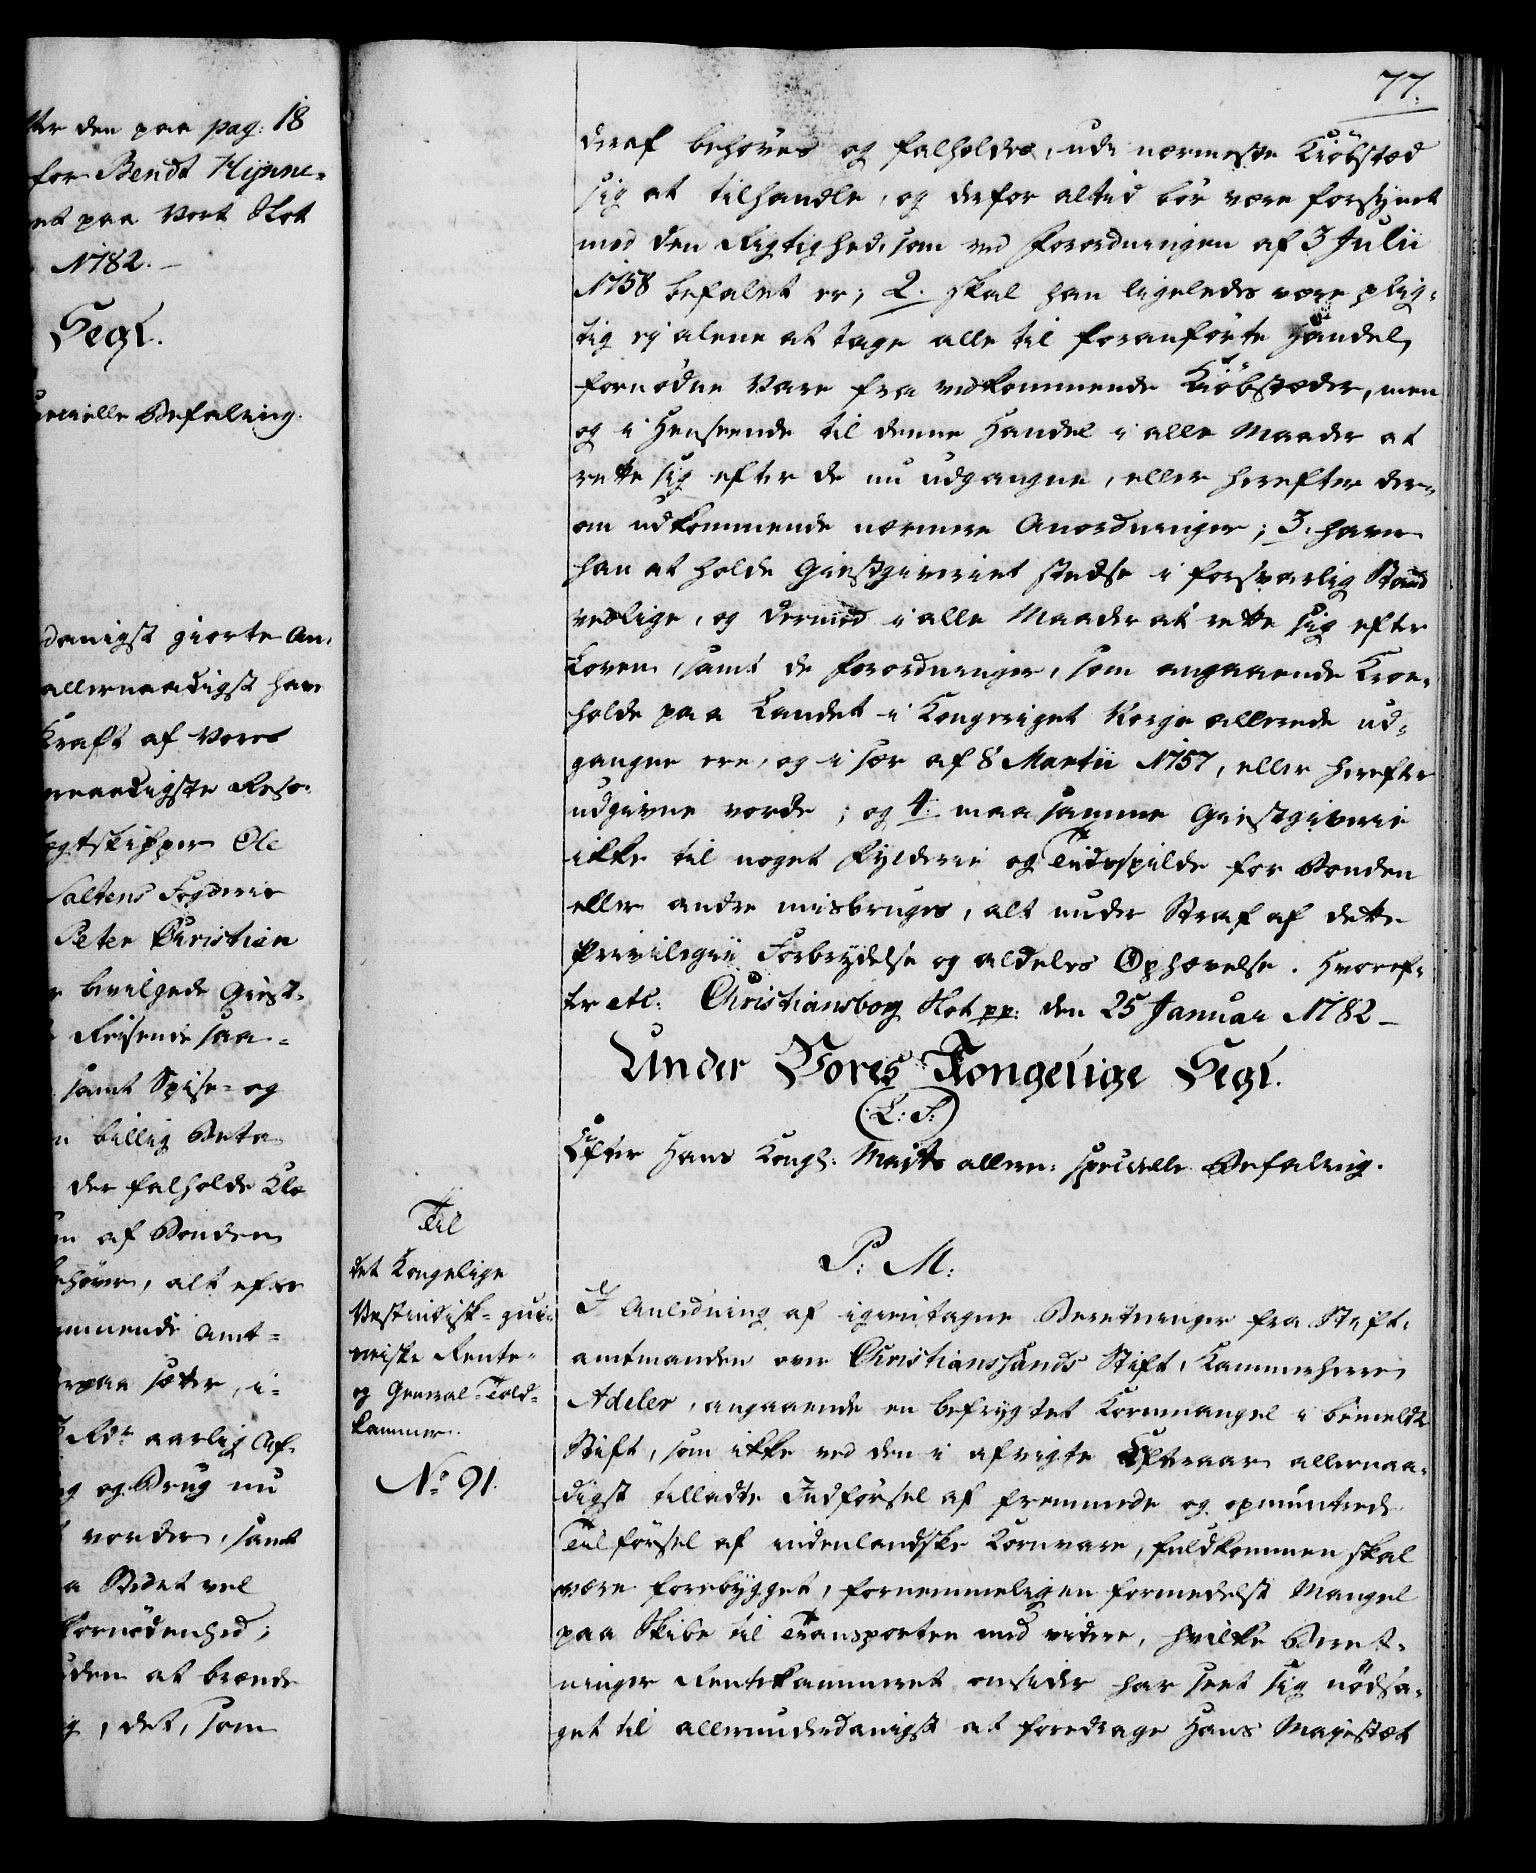 ter den paa pag: 18
for Bendt Hynne-
et paa Vort Slot
1782.
Segl.
specielle Befaling.
danigst giorte An-
allernaadigst have
Kraft af Vores
naadigste Reso-
gtskipper Ole
Saltens Fogderie
Peter Christian
bevilgede Giest-
Reisende saa-
samt Spise- og
billig Beta-
der falholde Klæ
af Bonden
behøver, alt efter
kommende Amt-
paa sætter, i-
Rdr aarlig Af-
og Brug nu
vorder, samt
a Stedet vel
fornødenhed;
uden at brænde
, det, som
77.
deraf behøves og falholdes, udi nærmeste Kiøbstæd
sig at tilhandle, og derfor altid bør være forsynet
med den Rigtighed, som ved Forordningen af 3 Julii
1758 befalet er; 2. skal han ligeledes være plig-
tig ej alene at tage alle til foranførte Handel,
fornødne Vare fra vedkommende Kiøbstæder, men
og i Henseende til denne Handel i alle Maader at
rette sig efter de nu udgangne, eller herefter der-
om udkommende nærmere Anordninger; 3. haver
han at holde Giestgiveriet stedse i forsvarlig Stand
vedlige, og dermed i alle Maader at rette sig efter
Loven, samt de Forordninger, som angaaende Kroe-
holde paa Landet i Kongeriget Norge allerede ud-
gangne ere, og i sær af 8 Martii 1757, eller herefter
udgivne vorde; og 4. maa samme Giestgiverie
ikke til noget Fylderie og Tidsspilde for Bonden
eller andre misbruges, alt under Straf af dette
Privilegii Forbrydelse og aldeles Ophævelse. Hvoref-
ter etc: Christiansborg Slot pp: den 25 Januar 1782
Under Vores Kongelige Segl.
(L: S:)
Efter Hans Kongl: Majts allern: specielle Befaling.
Til
det Kongelige
Vestindisk- gui-
neiske Rente-
og General-Told-
kammer.
No 91.
P: M:
I Anledning af igientagne Beretninger fra Stift-
amtmanden over Christianssands Stift, Kammerherre
Adeler, angaaende en befrygtet Kornmangel i bemeldte
Stift, som ikke ved den i afvigte Efteraar allernaa-
digst tilladte Indførsel af fremmede og opmuntrede
Tilførsel af indenlandske Kornvare, fuldkommen skal
være forebygget, fornemmeligen formedelst Mangel
paa Skibe til Transporten med videre, hvilke Beret-
ninger Rentekammeret omsider har seet sig nødsa-
get til allerunderdanigst at foredrage Hans Majestæt